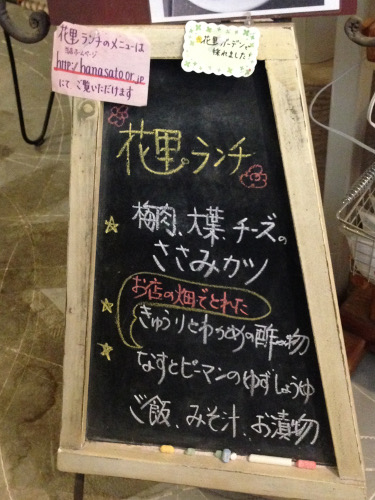 花里ランチのメニューは
http://hanasato.or.jp
にて ご覧いただけます
花里ガーデンで
採れました!
花里ランチ
梅肉、大葉、チーズの
ささみカツ
お店の畑でとれた
きゅうりとわかめの酢の物
なすとピーマンのゆずしょうゆ
ご飯、みそ汁、お漬物